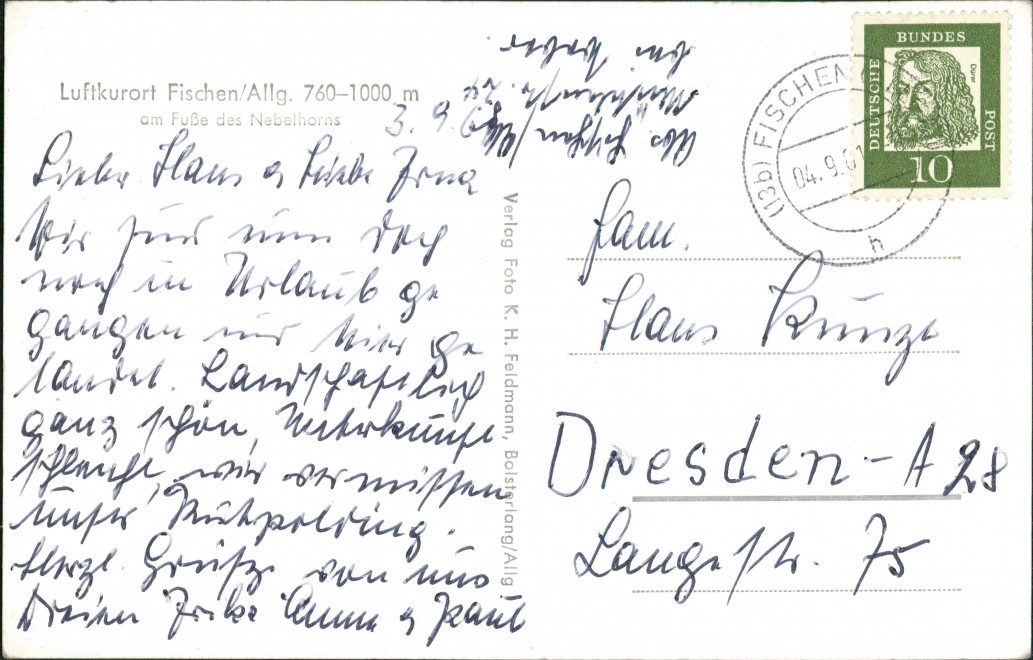 Luftkurort Fischen/Allg. 760–1000 m
am Fuße des Nebelhorns
3. 9. 61
Lieber Hans & Liebe Erna
Wir sind nun doch
noch in Urlaub ge
gangen und hier ge
landet. Landschaftlich
ganz schön, Unterkunft
schlecht, wir vermissen
unser Ruhpolding.
Herzl. Grüße von uns
Dreien Anna & Paul
Verlag Foto K. H. Feldmann, Bolsterlang/Allg
Abs. Fischen/
bei Weber
DEUTSCHE
BUNDES
POST
Dürer
10
(13b) FISCHEN
04.9.61
h
Fam.
Hans Kunze
Dresden-A 28
Langestr. 75